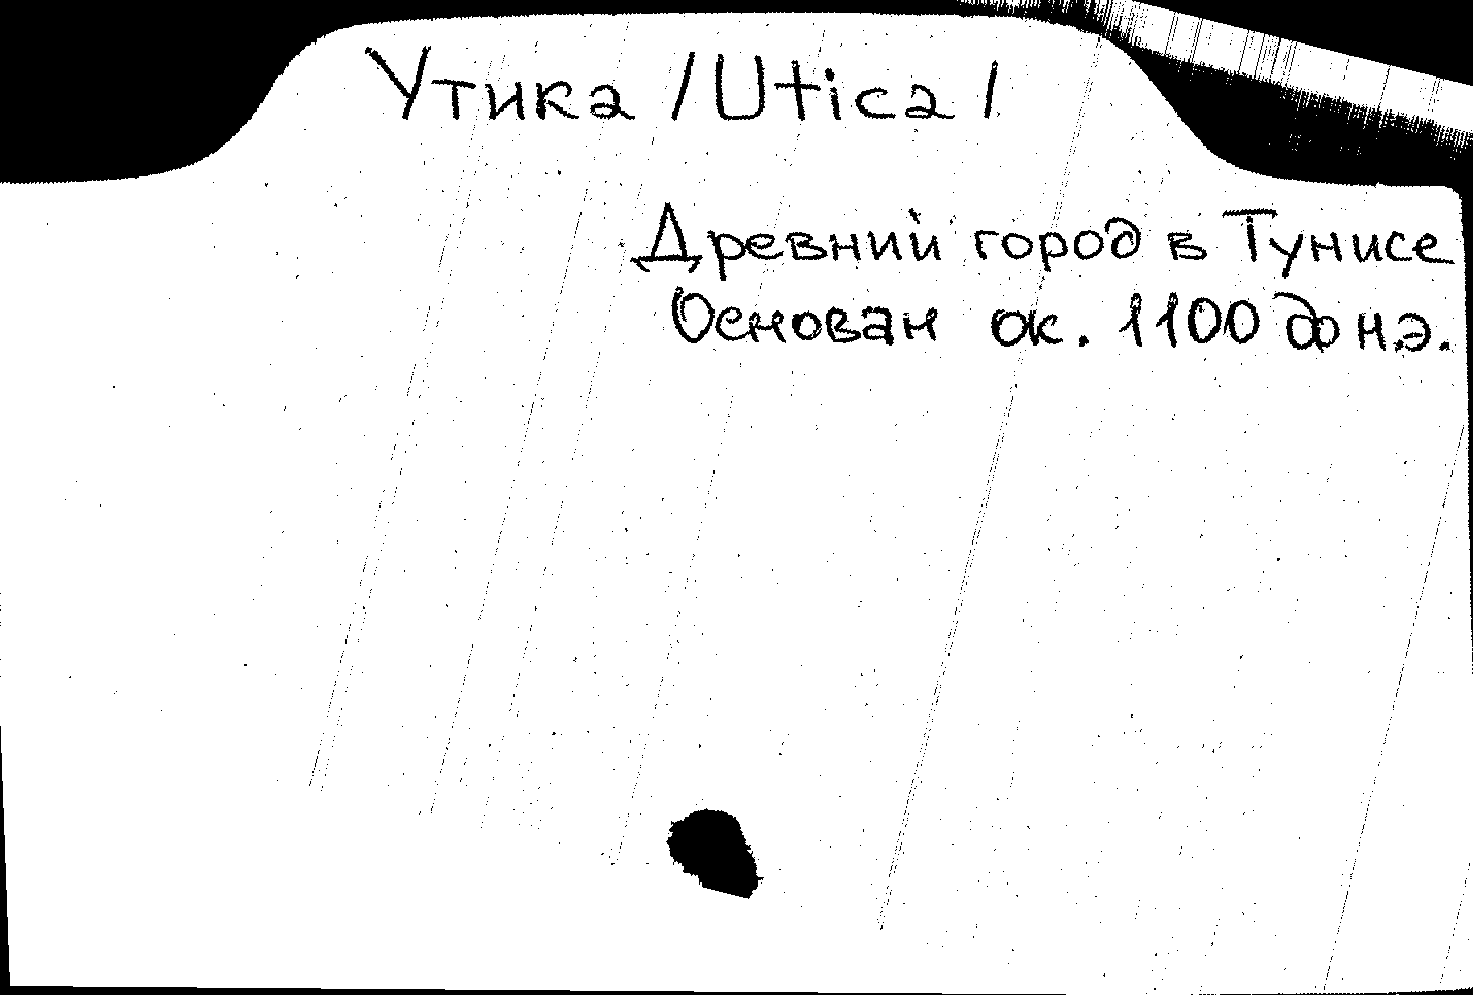 Утика /Utica/
Древний город в Тунисе
Основан ок. 1100 до н.э.